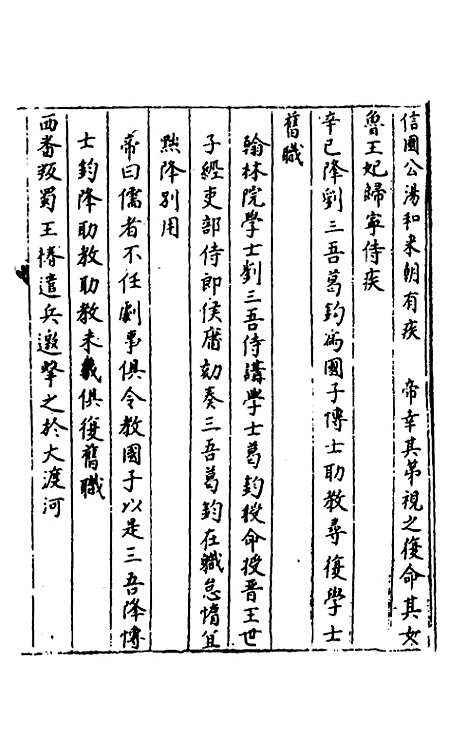 信國公湯和來朝有疾　帝幸其第視之復命其女
魯王妃歸寧侍疾
辛巳降劉三吾葛鈞為國子博士助教尋復學士
舊職
翰林院學士劉三吾侍講學士葛鈞授命授晋王世
子經吏部侍郎侯庸劾奏三吾葛鈞在職怠惰宜
黜降别用
帝曰儒者不任劇事俱令教國子以是三吾降博
士鈞降助教助教未幾俱復舊職
西畨叛蜀王椿遣兵邀擊之於大渡河